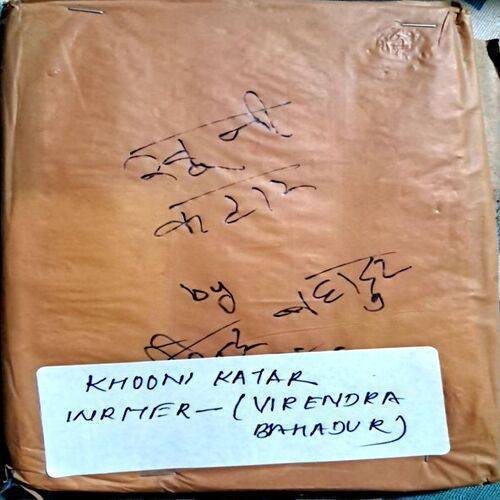 खूनी
कटार
by
बहादुर
KHOONI KATAR
INRMER-(VIRENDRA
BAHADUR)